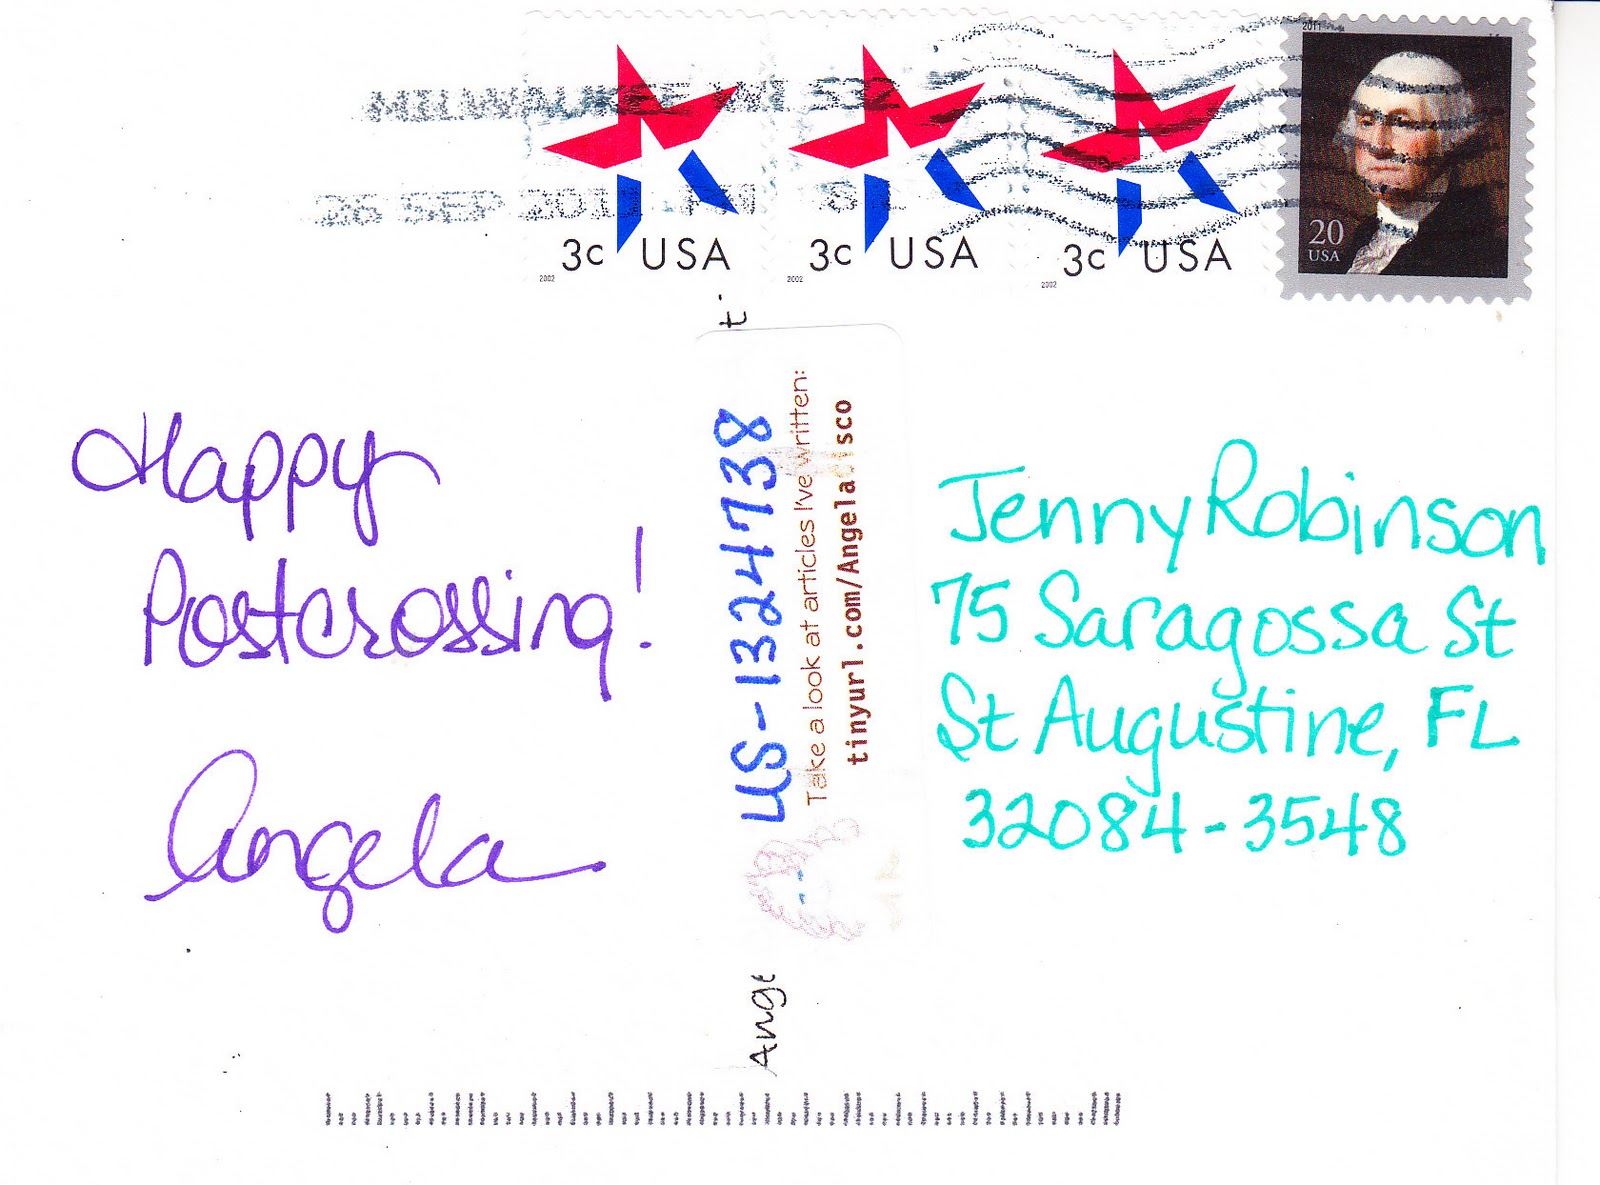 MILWAUKEE WI 532
26 SEP 2011 PM
3c USA
2002
3c USA
2002
3c USA
2002
2011
20
USA
Happy
Postcrossing!
Angela
US-1324738
Take a look at articles I've written:
tinyurl.com/Angelacisco
Ange
t.
Jenny Robinson
75 Saragossa St
St Augustine, FL
32084-3548